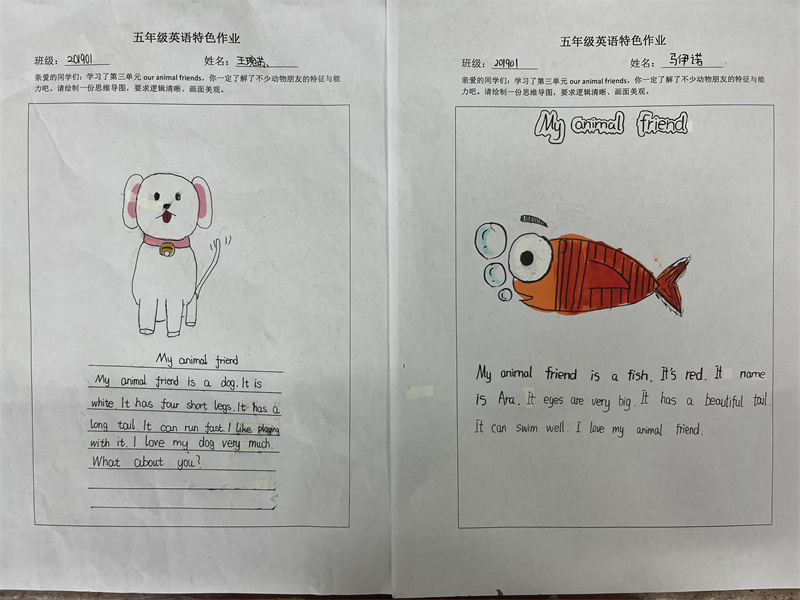 五年级英语特色作业
班级：201901 姓名：王琬茗、
亲爱的同学们：学习了第三单元 our animal friends，你一定了解了不少动物朋友的特征与能
力吧。请绘制一份思维导图，要求逻辑清晰、画面美观。
My animal friend
My animal friend is a dog. It is
white It has four short legs. It has a
long tail. It can run fast. I like playing
with it. I love my dog very much.
What about you?
五年级英语特色作业
班级：201901 姓名：马伊诺
亲爱的同学们：学习了第三单元 our animal friends，你一定了解了不少动物朋友的特征与能
力吧。请绘制一份思维导图，要求逻辑清晰、画面美观。
My animal friend
My animal friend is a fish. It's red. It name
is Ara. It eyes are very big. It has a beautiful tail.
It can swim well. I love my animal friend.